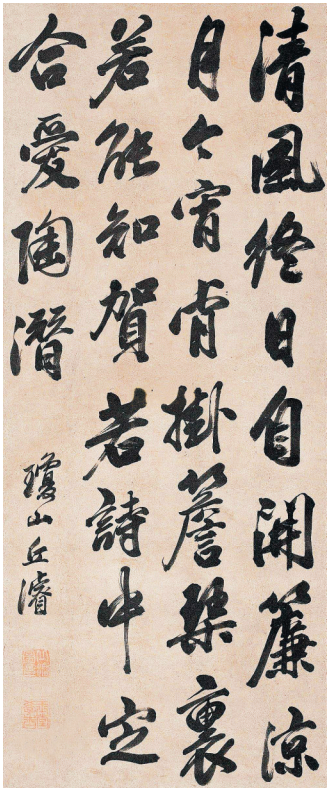 清風終日自開簾涼
月今宵肯掛簷琹裏
若能知賀若詩中定
合愛陶潛
瓊山丘濬